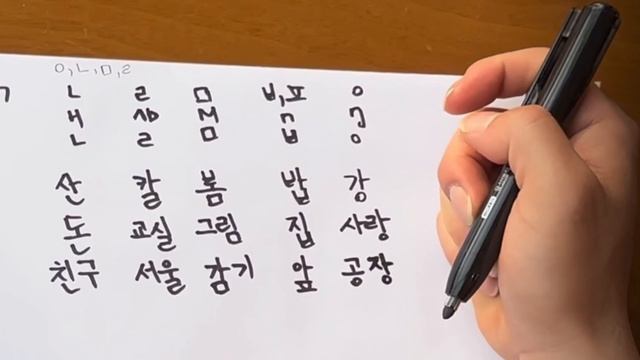 ㅇ,ㄴ,ㅁ,ㄹ
ㄱ ㄴ ㄹ ㅁ ㅂ,ㅍ ㅇ
ㄴ ㄹ ㅁ ㅂ ㅇ
산 칼 봄 밥 강
돈 교실 그림 집 사랑
친구 서울 감기 앞 공장